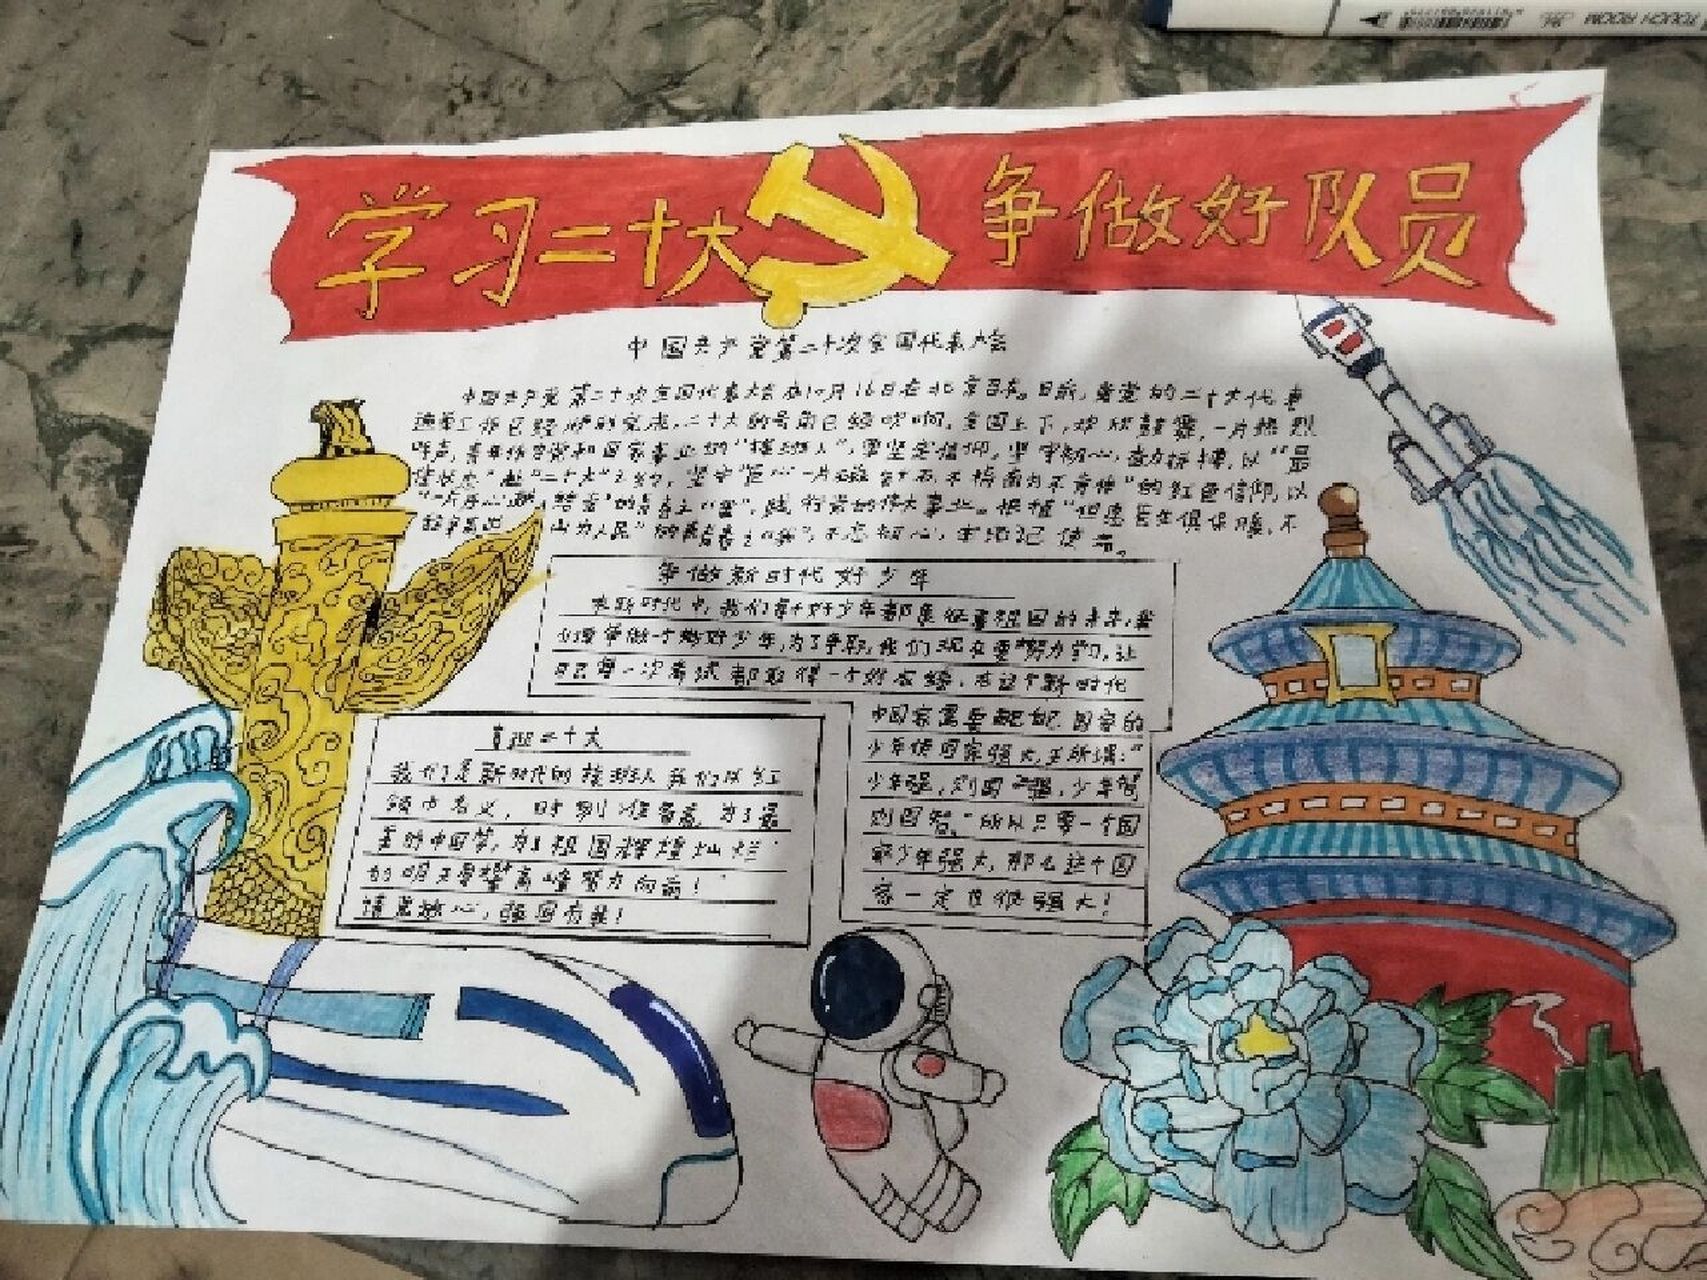 学习二十大 争做好队员
中国共产党第二十次全国代表大会
中国共产党第二十次全国代表大会在10月16日在北京召开。日前,我党的二十大代表
选举工作已经顺利完成,二十大的号角已经吹响,全国上下,欢欣鼓舞,一片热烈
呼声,青年作为党和国家事业的“接班人”,要坚定信仰,坚守初心,奋力拼搏,以“最
佳状态”赴“二十大”之约,坚守“臣心一片磁针石,不指南方不肯休”的红色信仰,以
践行党的伟大事业。根据
山为人民”的 不忘初心,牢记使命。
争做新时代好少年
在新时代中,我们每个好少年都象征着祖国的未来,我
们要争做一个好少年,为了争取,我们现在要努力学习,让
自己每一次考试都取得一个好成绩,在这个新时代
中国家需要 国家的
少年使国家强大,正所谓:“
少年强,则国强,少年智
则国智。”所以只要一个国
家少年强大,那么这个国
家一定也很强大!
喜迎二十大
我们是新时代的接班人我们以红
领巾名义,时刻准备着,为了最
美的中国梦,为了祖国辉煌灿烂
的明天勇攀高峰努力向前!
请党放心,强国有我!
TOUCH ROOM